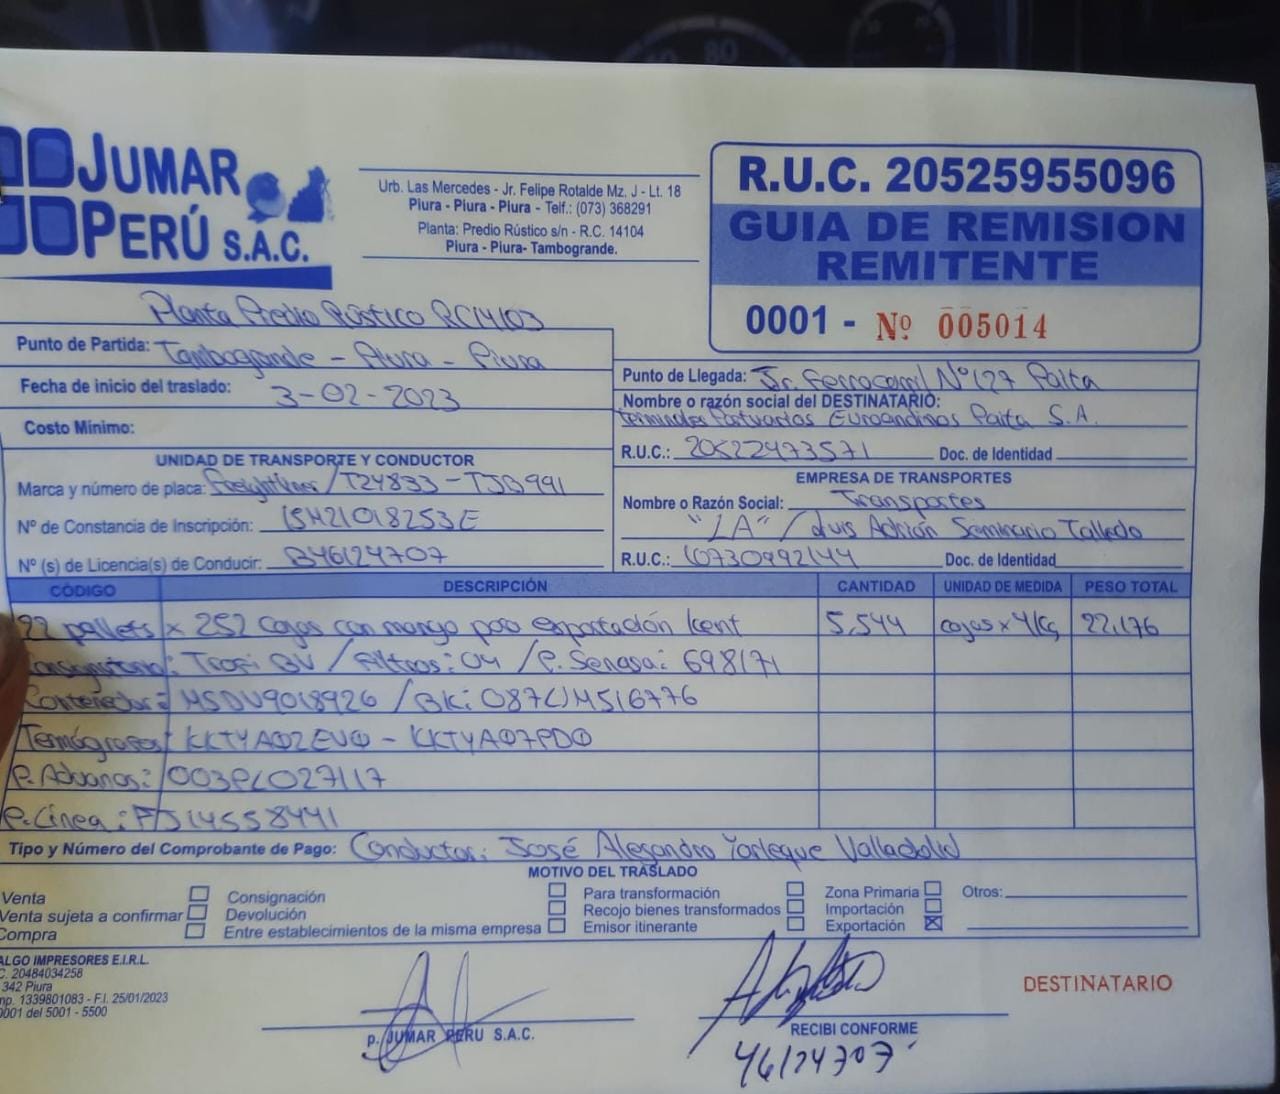 JUMAR
PERÚ S.A.C.
Urb. Las Mercedes - Jr. Felipe Rotalde Mz. J - Lt. 18
Piura - Piura - Piura - Telf.: (073) 368291
Planta: Predio Rústico s/n - R.C. 14104
Piura - Piura- Tambogrande.
R.U.C. 20525955096
GUIA DE REMISION
REMITENTE
0001 - Nº 005014
Planta Predio Rústico RC14103
Punto de Partida: Tambogrande - Piura - Piura
Fecha de inicio del traslado: 3-02-2023
Costo Mínimo:
Punto de Llegada: Jr. Ferrocarril Nº127 Paita
Nombre o razón social del DESTINATARIO:
Terminales Portuarios Euroandinos Paita S.A.
R.U.C.: 20522473571 Doc. de Identidad
UNIDAD DE TRANSPORTE Y CONDUCTOR
Marca y número de placa: Freightliner / T2Y833 - TJB991
Nº de Constancia de Inscripción: 15M21018253E
Nº (s) de Licencia(s) de Conducir: B46124707
EMPRESA DE TRANSPORTES
Nombre o Razón Social: Transportes
"LA" / Luis Adrián Seminario Talledo
R.U.C.: 10730992144 Doc. de Identidad
CÓDIGO DESCRIPCIÓN CANTIDAD UNIDAD DE MEDIDA PESO TOTAL
22 pallets x 252 Cajas con mango para exportación kent 5,544 cajas x 4Kg 22,176
Consignatario: Trofi BV / Filtros: 04 / P. Senasa: 698171
Contenedor: MSDU9018926 / BK: 087CJM516776
Termógrafos: KKTYA02EV0 - KKTYA07PD0
P. Aduanas: 003PL027117
P. Línea: FJ14558441
Tipo y Número del Comprobante de Pago: Conductor: José Alejandro Yarleque Valladolid
MOTIVO DEL TRASLADO
Venta Consignación Para transformación Zona Primaria Otros:
Venta sujeta a confirmar Devolución Recojo bienes transformados Importación
Compra Entre establecimientos de la misma empresa Emisor itinerante Exportación
ALGO IMPRESORES E.I.R.L.
C. 20484034258
342 Piura
mp. 1339801083 - F.I. 25/01/2023
0001 del 5001 - 5500
p. JUMAR PERU S.A.C.
RECIBI CONFORME
46124707
DESTINATARIO